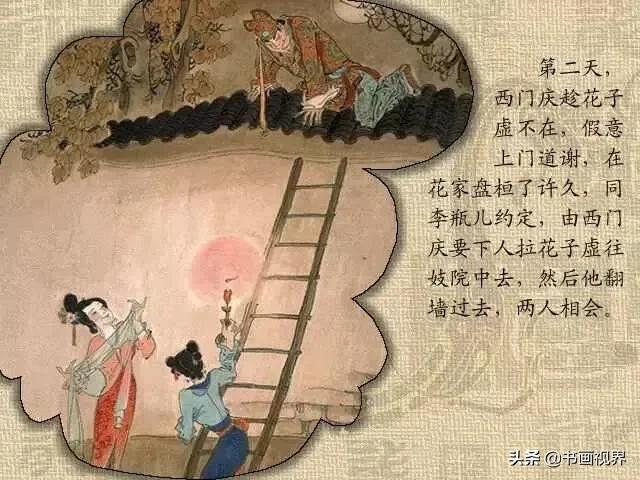 第二天，
西门庆趁花子
虚不在，假意
上门道谢，在
花家盘桓了许久，同
李瓶儿约定，由西门
庆要下人拉花子虚往
妓院中去，然后他翻
墙过去，两人相会。
头条 @书画视界